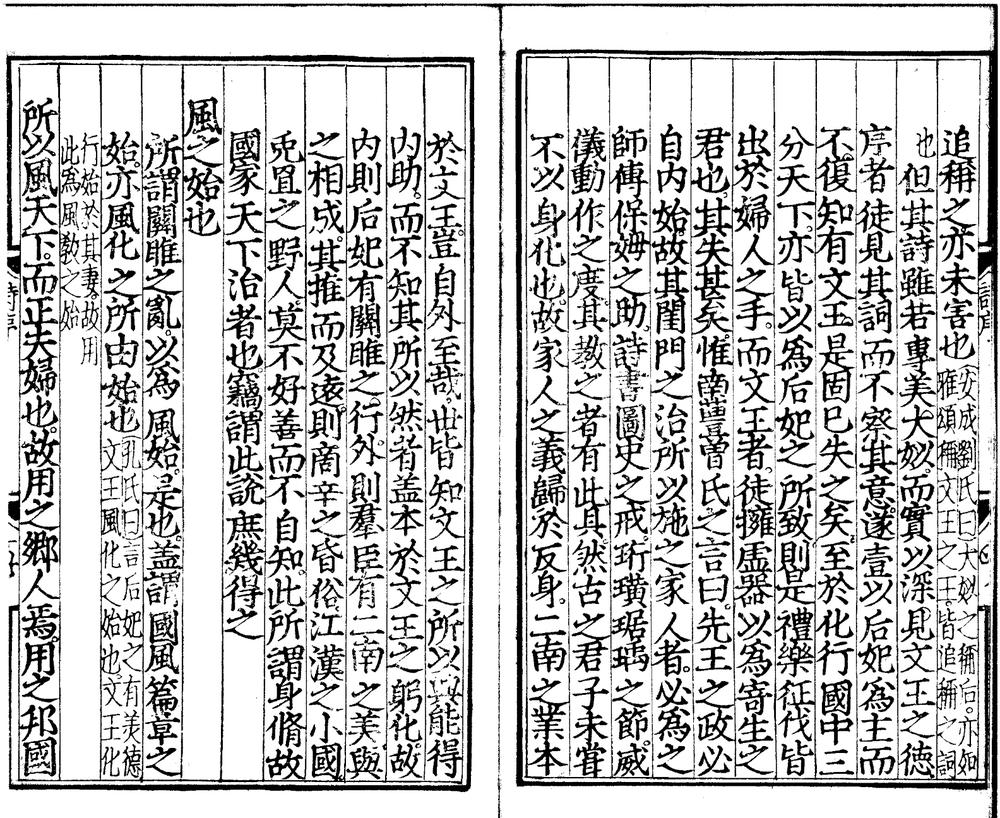 追稱之亦未害也安成劉氏曰大姒之稱后亦如雅頌稱文王之王皆追稱之詞
也但其詩雖若專美大姒而實以深見文王之德
序者徒見其詞而不察其意遂壹以后妃為主而
不復知有文王是固已失之矣至於化行國中三
分天下亦皆以為后妃之所致則是禮樂征伐皆
出於婦人之手而文王者徒擁虛器以為寄生之
君也其失甚矣惟南豐曾氏之言曰先王之政必
自內始故其閨門之治所以施之家人者必為之
師傅保姆之助詩書圖史之戒珩璜琚瑀之節威
儀動作之度其教之者有此具然古之君子未甞
不以身化也故家人之義歸於反身二南之業本
於文王豈自外至哉世皆知文王之所以能得
內助而不知其所以然者盖本於文王之躬化故
內則后妃有關雎之行外則羣臣有二南之美與
之相成其推而及遠則商辛之昏俗江漢之小國
兎罝之野人莫不好善而不自知此所謂身脩故
國家天下治者也竊謂此說庶幾得之
風之始也
所謂關雎之亂以為風始是也盖謂國風篇章之
始亦風化之所由始也孔氏曰言后妃之有美德文王風化之始也文王化
行始於其妻故用此為風教之始
所以風天下而正夫婦也故用之鄉人焉用之邦國